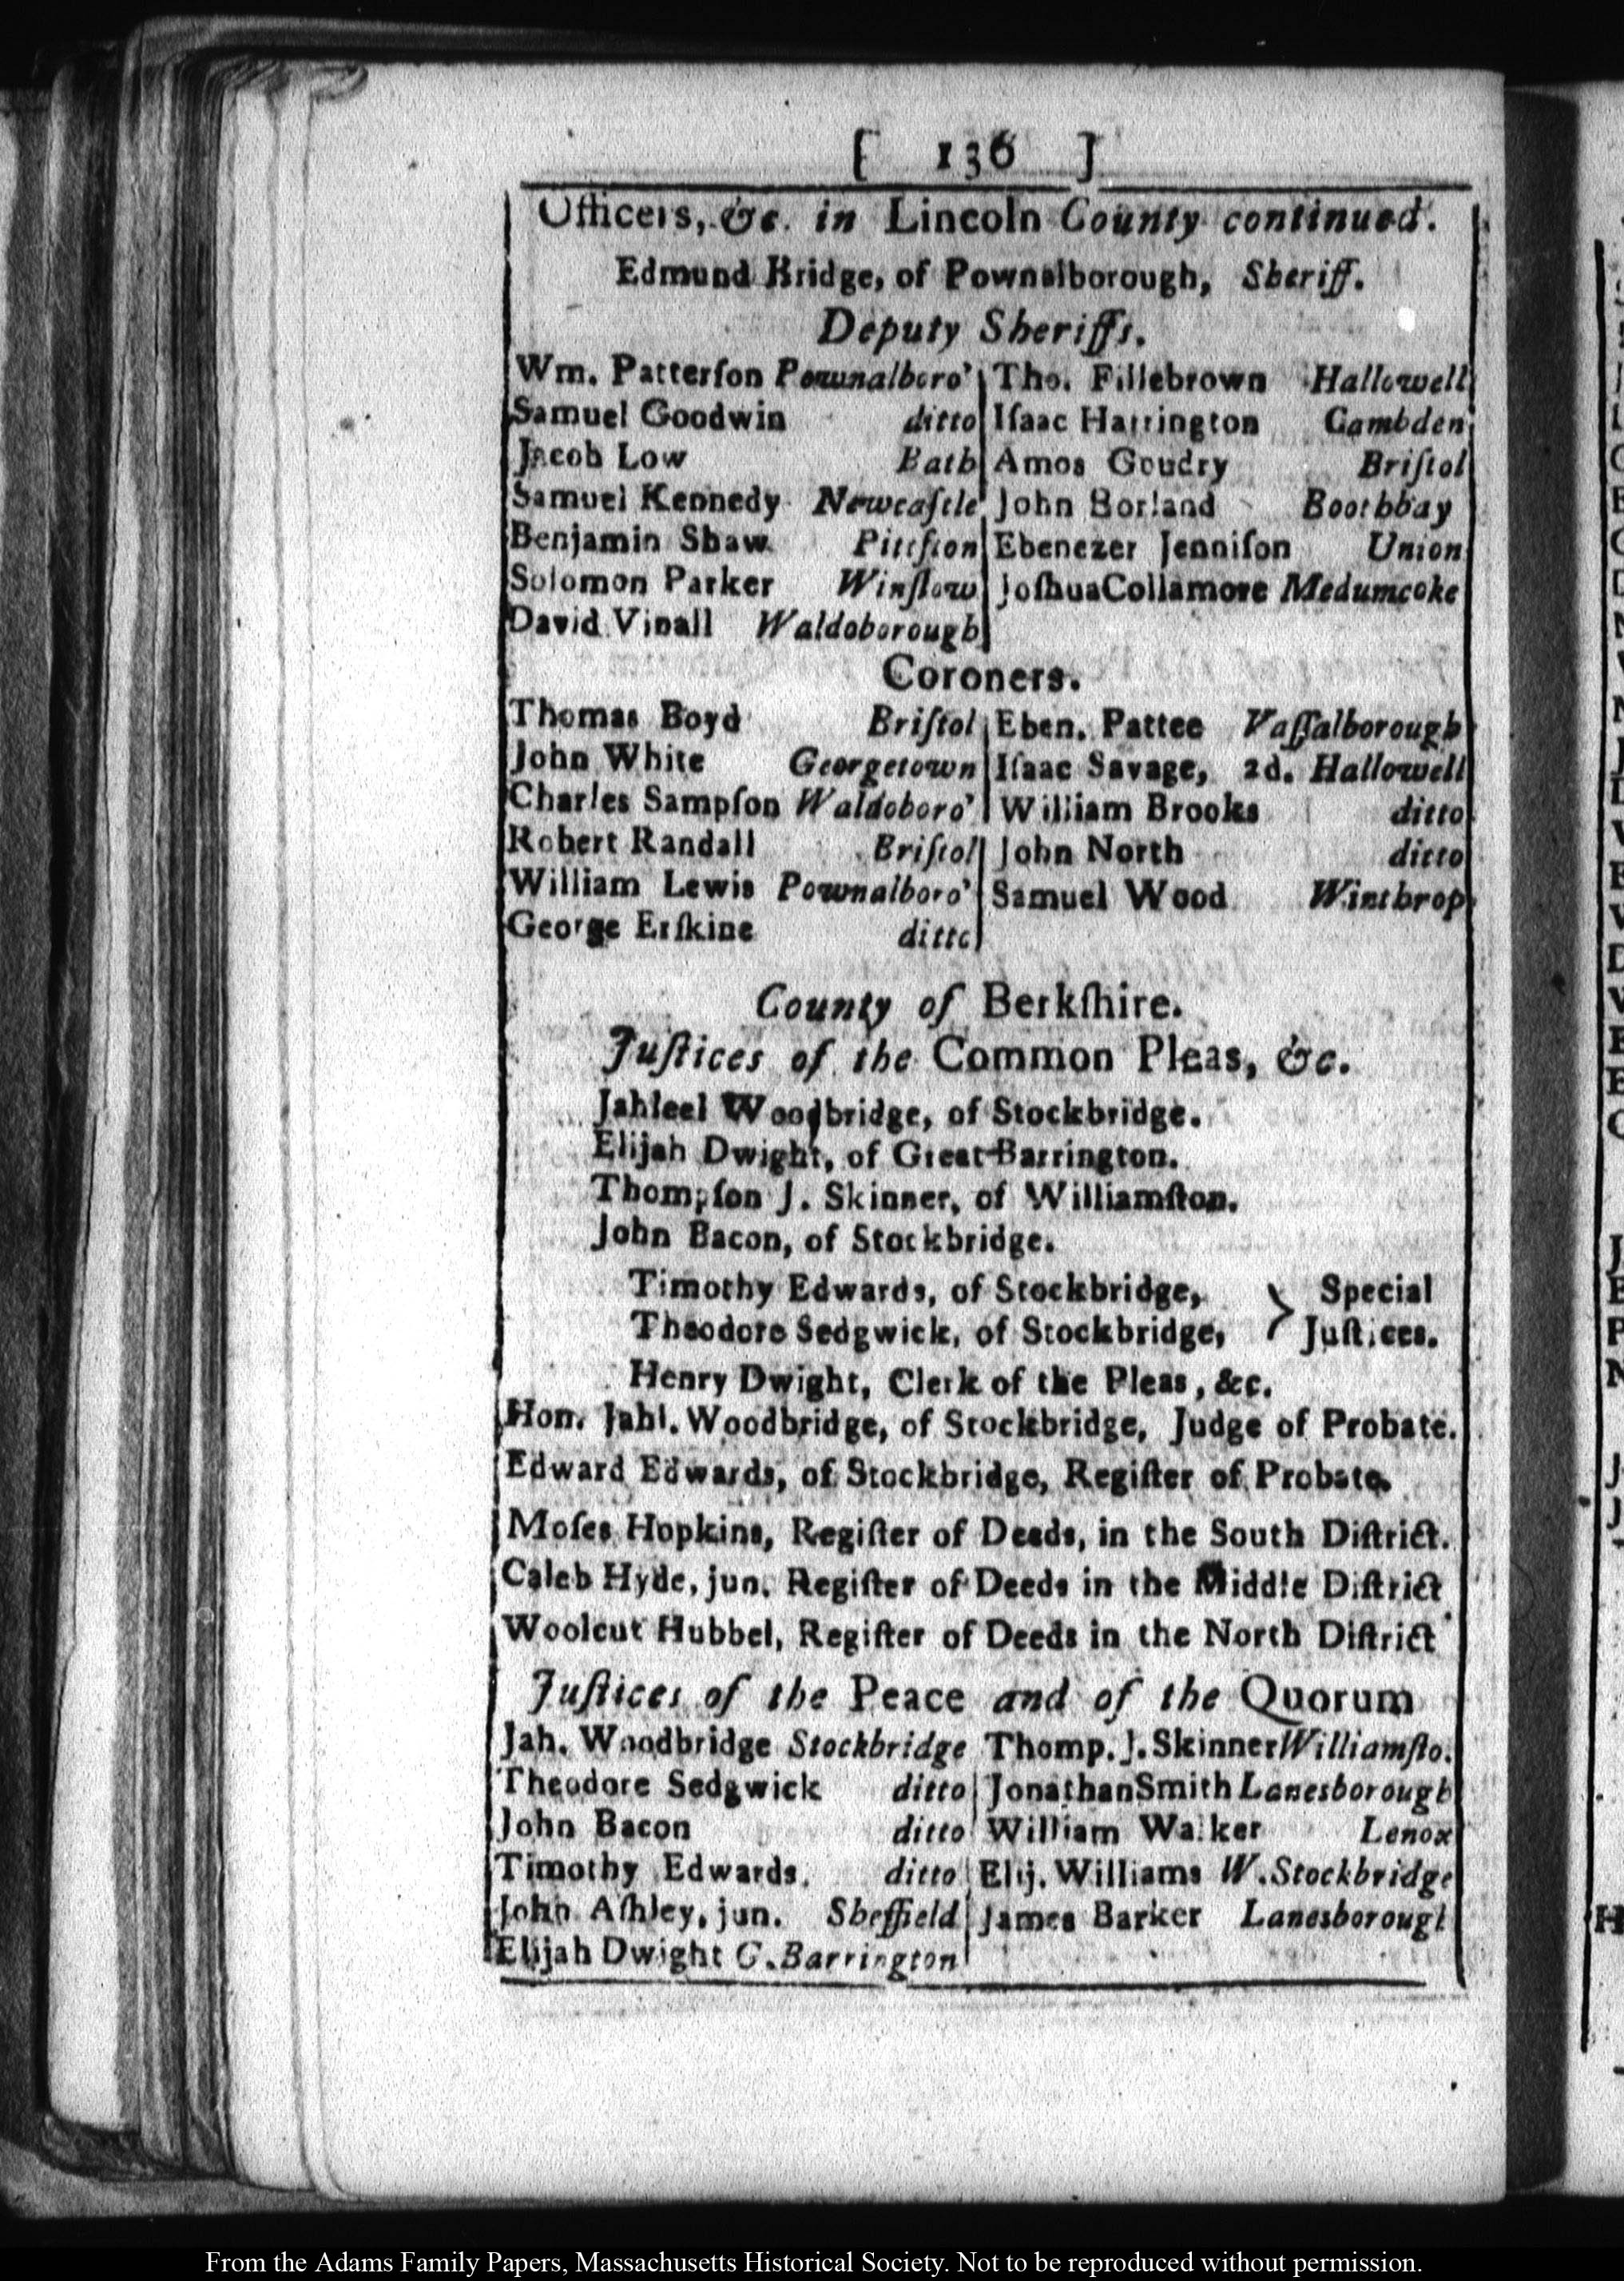 [ 136 ]
Officers, &c. in Lincoln County continued.
Edmund Bridge, of Pownalborough, Sheriff.
Deputy Sheriffs.
Wm. Patterſon Pownalboro'
Samuel Goodwin ditto
Jacob Low Bath
Samuel Kennedy Newcaſtle
Benjamin Shaw Pittſton
Solomon Parker Winſlow
David Vinall Waldoborough
Tho. Fillebrown Hallowell
Iſaac Harrington Cambden
Amos Goudry Briſtol
John Borland Boothbay
Ebenezer Jenniſon Union
Joſhua Collamore Medumcoke
Coroners.
Thomas Boyd Briſtol
John White Georgetown
Charles Sampſon Waldoboro'
Robert Randall Briſtol
William Lewis Pownalboro'
George Erſkine ditto
Eben. Pattee Vaſſalborough
Iſaac Savage, 2d. Hallowell
William Brooks ditto
John North ditto
Samuel Wood Winthrop
County of Berkſhire.
Juſtices of the Common Pleas, &c.
Jahleel Woodbridge, of Stockbridge.
Elijah Dwight, of Great-Barrington.
Thompſon J. Skinner, of Williamſton.
John Bacon, of Stockbridge.
Timothy Edwards, of Stockbridge,
Theodore Sedgwick, of Stockbridge,
} Special
Juſtices.
Henry Dwight, Clerk of the Pleas, &c.
Hon. Jahl. Woodbridge, of Stockbridge, Judge of Probate.
Edward Edwards, of Stockbridge, Regiſter of Probate.
Moſes Hopkins, Regiſter of Deeds, in the South Diſtrict.
Caleb Hyde, jun. Regiſter of Deeds in the Middle Diſtrict
Woolcut Hubbel, Regiſter of Deeds in the North Diſtrict
Juſtices of the Peace and of the Quorum
Jah. Woodbridge Stockbridge
Theodore Sedgwick ditto
John Bacon ditto
Timothy Edwards ditto
John Aſhley, jun. Sheffield
Elijah Dwight G. Barrington
Thomp. J. Skinner Williamſto.
Jonathan Smith Lanesborough
William Walker Lenox
Elij. Williams W. Stockbridge
James Barker Lanesborough
From the Adams Family Papers, Massachusetts Historical Society. Not to be reproduced without permission.